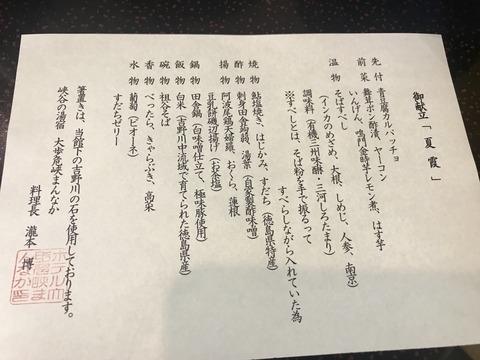 御献立「夏霞」
先付　青豆腐カルパッチョ
前菜　舞茸ポン酢漬、ヤーコン
いんげん、鳴門金時芋レモン煮、はす芋
温物　そばすべし
（インカのめざめ、大根、しめじ、人参、南京）
調味料（有機三州味醂・三河しろたまり）
※すべしとは、そば粉を手で振るって
すべらしながら入れていた為
焼物　鮎塩焼き、はじかみ、すだち（徳島県特産）
酢物　刺身田舎蒟蒻、湯葉（自家製酢味噌）
揚物　阿波尾鶏天婦羅、おくら、蓮根
豆乳餅磯辺揚げ（お茶塩）
鍋物　田舎鍋（白味噌仕立て、極味豚使用）
飯物　白米（吉野川中流域で育てられた徳島県産）
碗物　祖谷そば
香物　べったら、きゃらぶき、高菜
水物　葡萄（ピオーネ）
すだちゼリー
箸置きは、当館下の吉野川の石を使用しております。
峡谷の湯宿　大歩危峡まんなか
料理長　瀧本　博